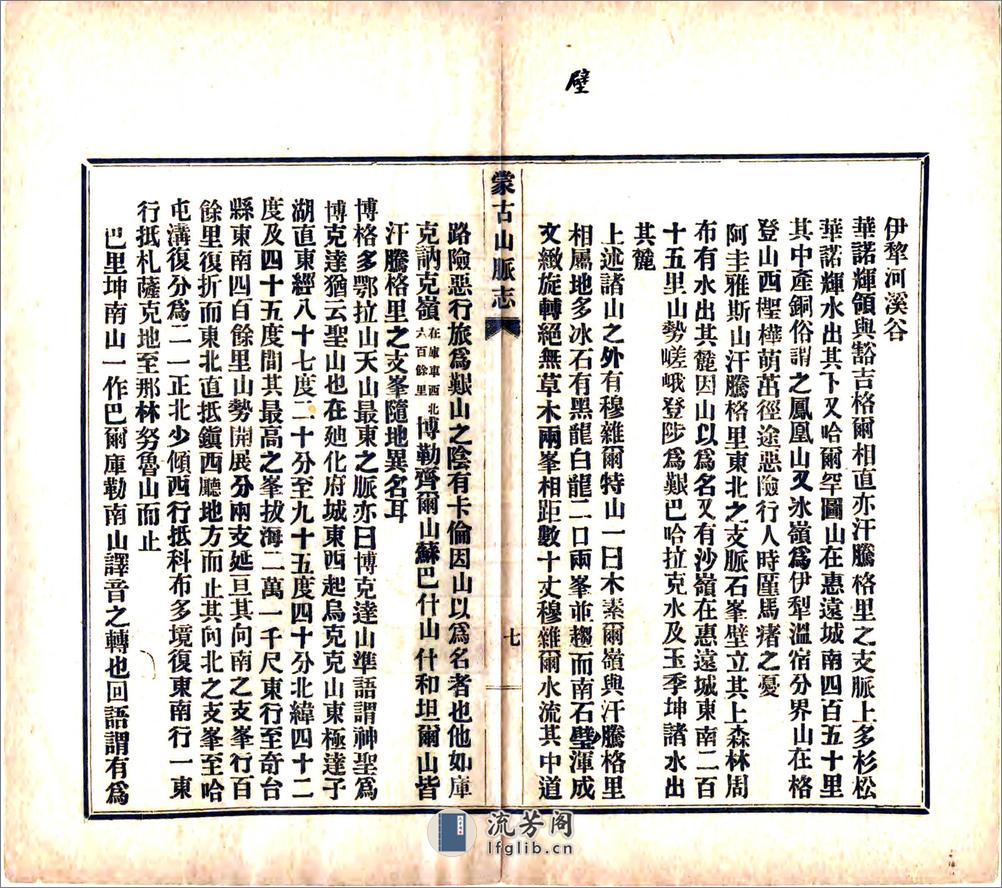 壁
伊犂河溪谷
華諾輝領與豁吉格爾相直亦汗騰格里之支脈上多杉松
華諾輝水出其下又哈爾罕圖山在惠遠城南四百五十里
其中產銅俗謂之鳳凰山又冰嶺爲伊犂溫宿分界山在格
登山西檉樺萌茁徑途惡險行人時厪馬瘏之憂
阿圭雅斯山汗騰格里東北之支脈石峯壁立其上森林周
布有水出其麓因山以爲名又有沙嶺在惠遠城東南二百
十五里山勢嵯峨登陟爲艱巴哈拉克水及玉季坤諸水出
其麓
上述諸山之外有穆雜爾特山一曰木素爾嶺與汗騰格里
相屬地多冰石有黑龍白龍二口兩峯並趨而南石璧渾成
文緻旋轉絕無草木兩峯相距數十丈穆雜爾水流其中道
蒙古山脈志
七
路險惡行旅爲艱山之陰有卡倫因山以爲名者也他如庫
克訥克嶺在庫車西北六百餘里博勒齊爾山蘇巴什山什和坦爾山皆
汗騰格里之支峯隨地異名耳
博格多鄂拉山天山最東之脈亦曰博克達山準語謂神聖爲
博克達猶云聖山也在廸化府城東西起烏克克山東極達子
湖直東經八十七度二十分至九十五度四十分北緯四十二
度及四十五度間其最高之峯拔海二萬一千尺東行至奇台
縣東南四百餘里山勢開展分兩支延亘其向南之支峯行百
餘里復折而東北直抵鎭西廳地方而止其向北之支峯至哈
屯溝復分爲二一正北少傾西行抵科布多境復東南行一東
行抵札薩克地至那林努魯山而止
巴里坤南山一作巴爾庫勒南山譯音之轉也回語謂有爲
流芳阁
lfglib.cn